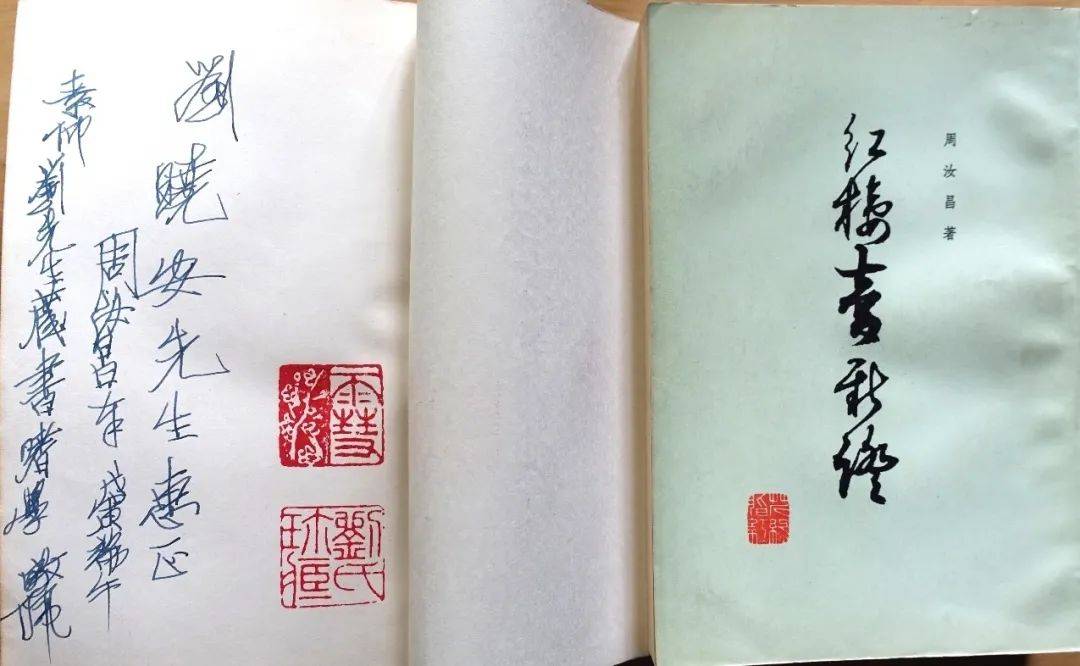 周汝昌著
红樓夢新證
劉曉安先生惠正
周汝昌 戊寅端午
素仰劉先生藏書嗜學 敬佩
劉氏